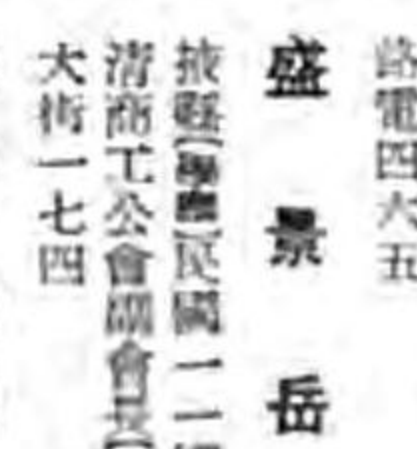 路電四六五
盛景岳
掖縣【學歷】民國一一
清商工公會副會長【
大街一七四